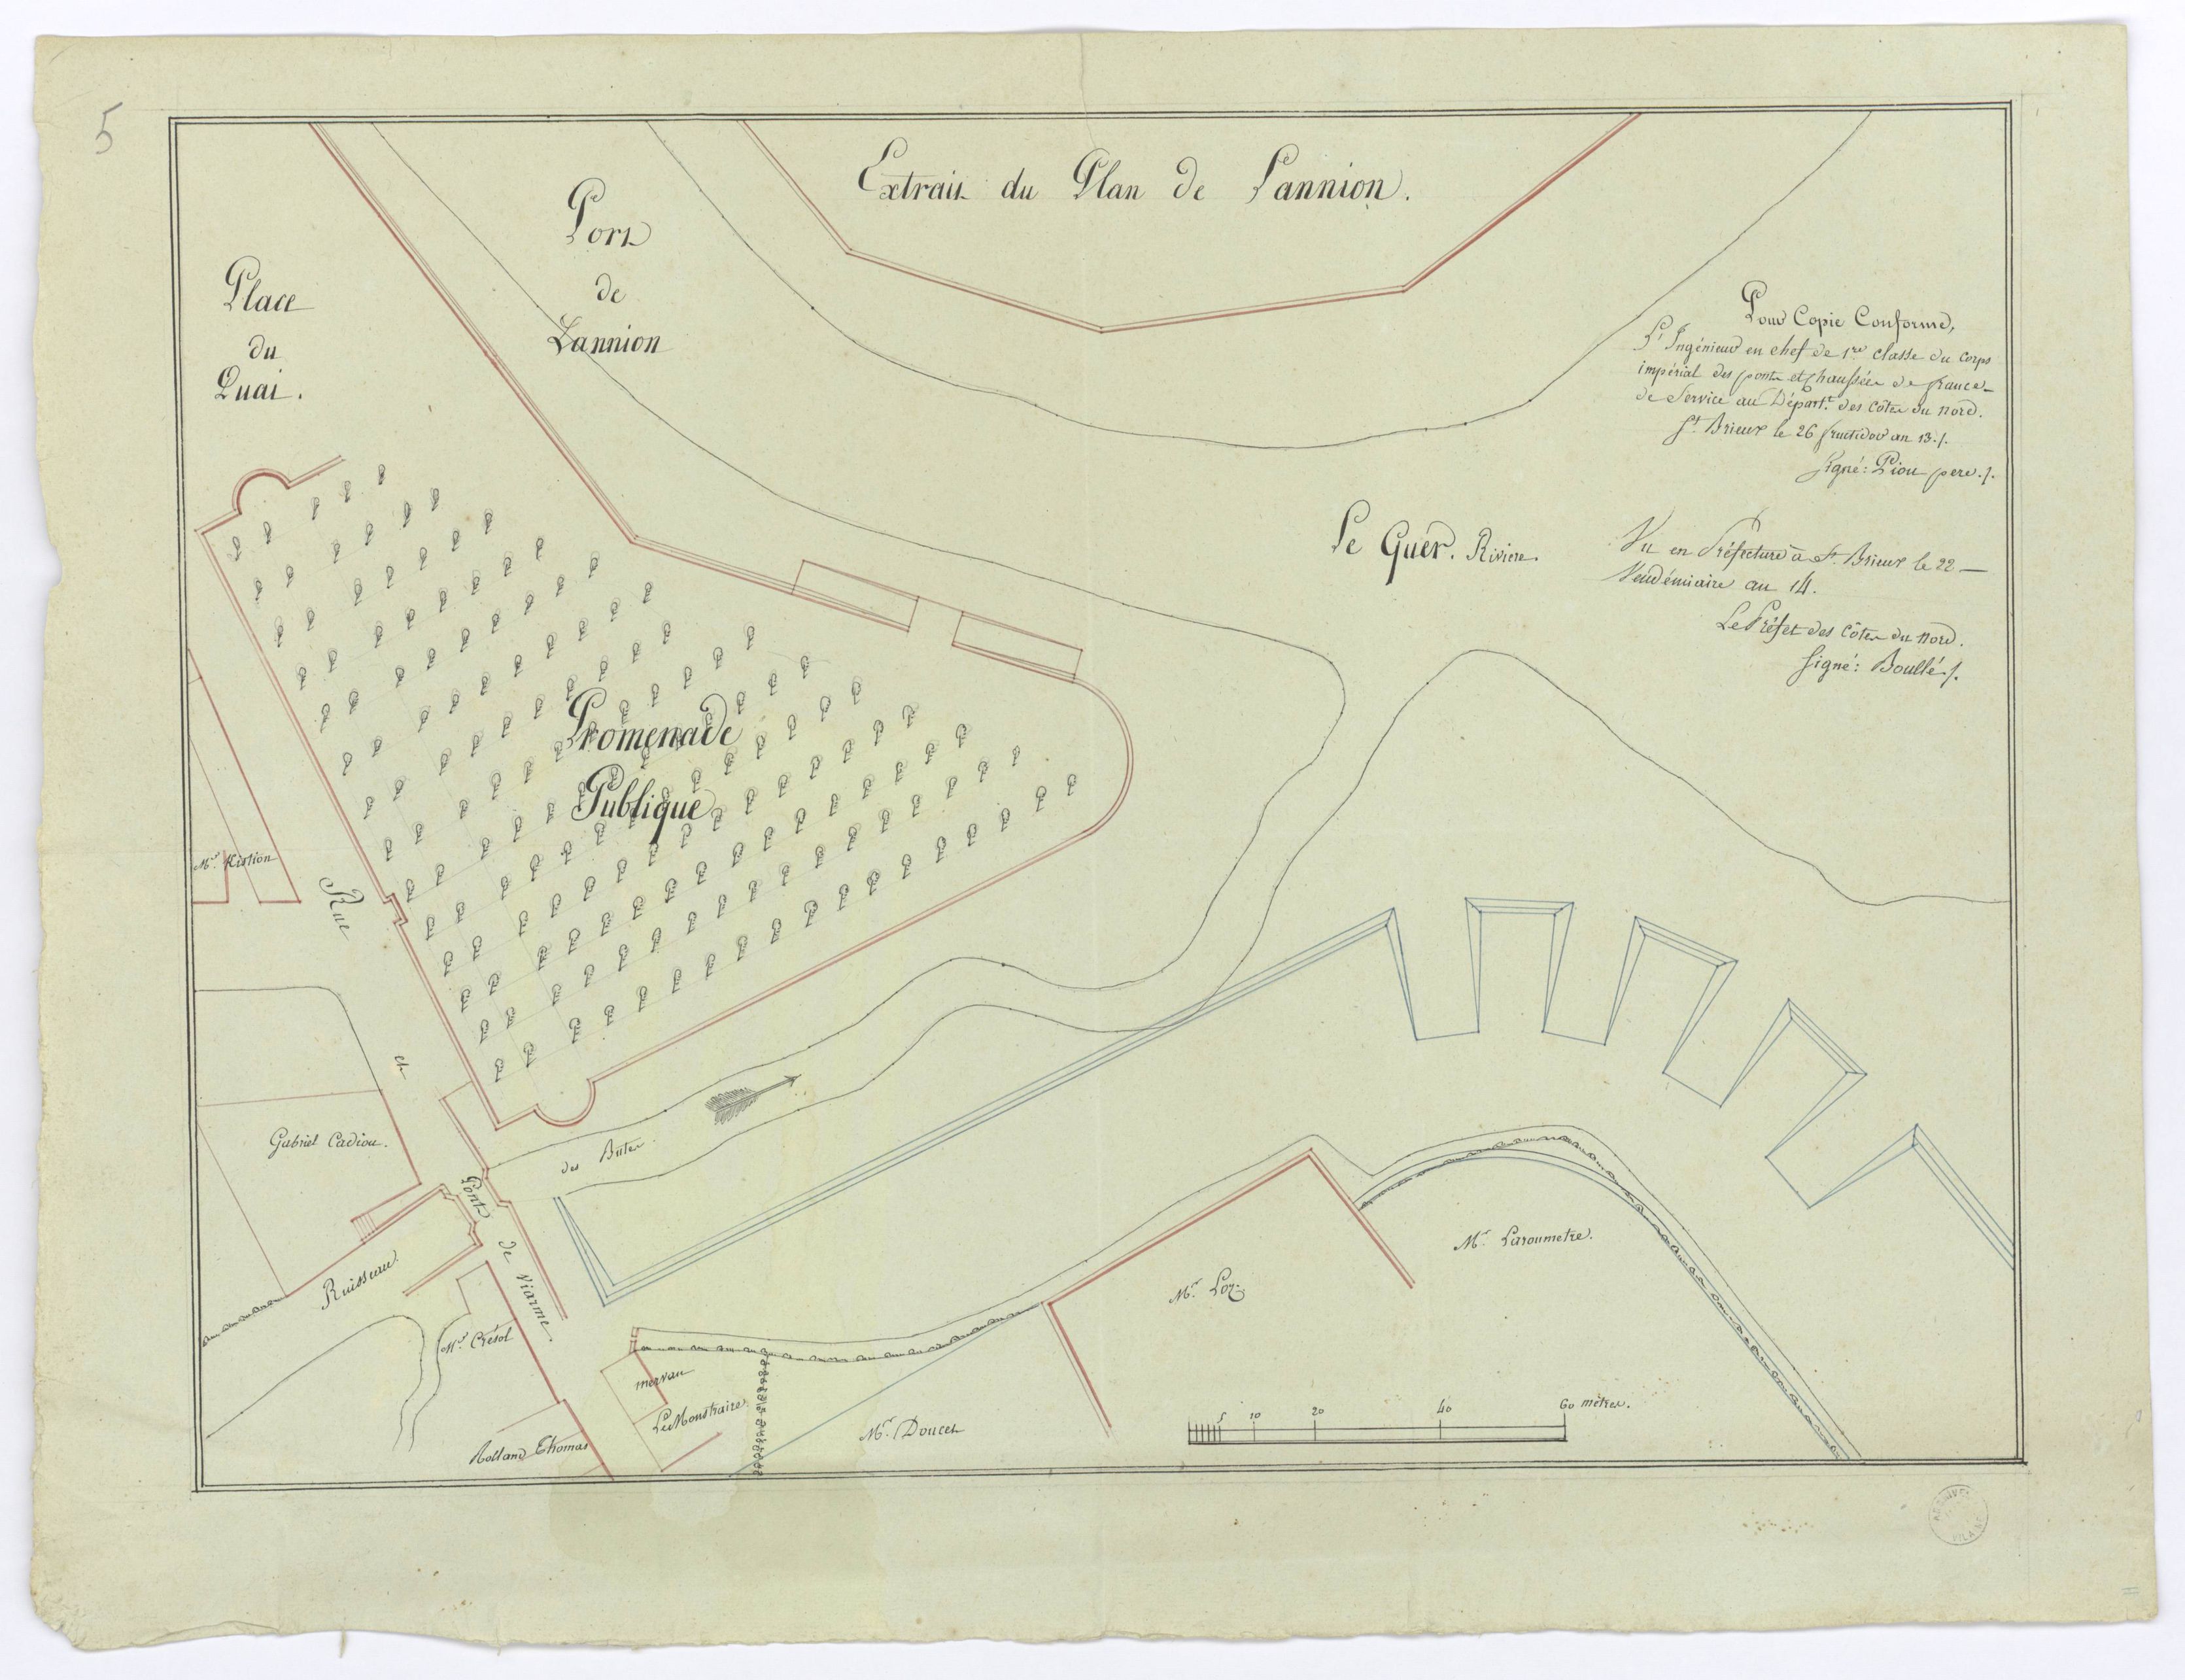 5
Extrait du Plan de Lannion.
Port
de
Lannion
Place
du
Quai.
Pour Copie Conforme,
L'Ingénieur en chef de 1re classe du Corps
impérial des ponts et Chaussées de france
de Service au Départ.t des Côtes du nord.
St. Brieux le 26 fructidor an 13./.
Signé: Piou pere./.
Le Guer. Riviere.
Vu en Préfecture à St. Brieux le 22
Vendémiaire an 14.
Le Préfet des Côtes du nord.
Signé: Boullé./.
Promenade
Publique
Mr. Kistion
Rue
et
Gabriel Cadiou.
des Buttes
Pont
de Viarme.
Ruisseau.
Mr. Crésol
Rolland Thomas
mervau
Le Monstraire
Mr. Doucet
Mr. Loz
Mr. Laroumetre.
5 10 20 40 60 mètres.